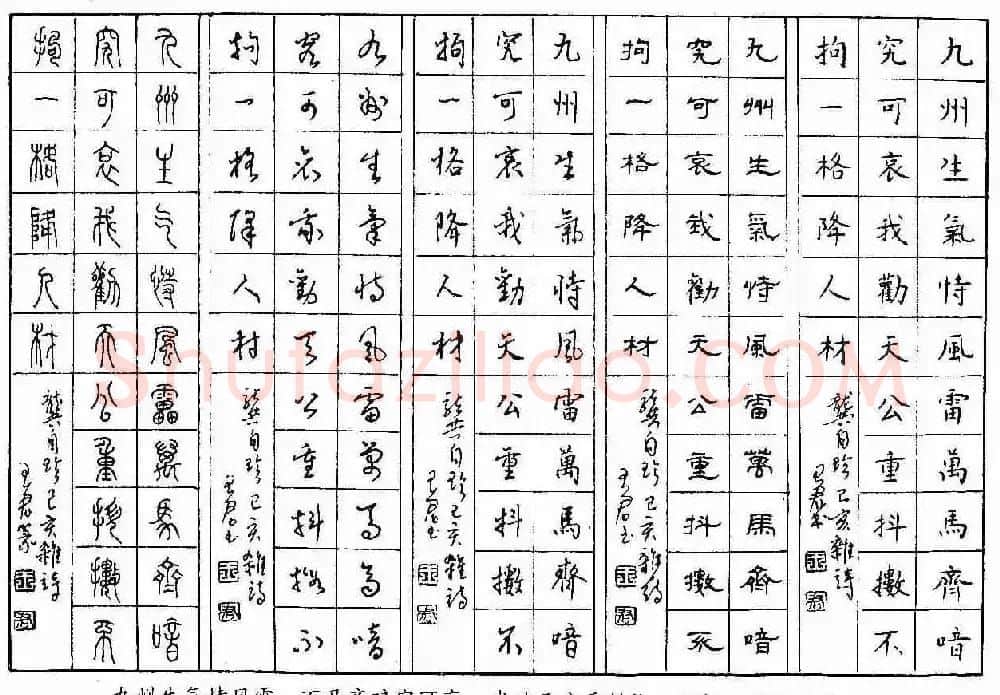 九州生氣恃風雷萬馬齊喑
究可哀我勸天公重抖擻不
拘一格降人材
龔自珍己亥雜詩
九州生氣恃風雷萬馬齊喑
究可哀我勸天公重抖擻不
拘一格降人材
龔自珍己亥雜詩
九州生氣恃風雷萬馬齊喑
究可哀我勸天公重抖擻不
拘一格降人材
龔自珍己亥雜詩
九州生氣恃風雷萬馬齊喑
究可哀我勸天公重抖擻不
拘一格降人材
龔自珍己亥雜詩
九州生气恃風雷萬馬齊喑
究可哀我勸天公重抖擻不
拘一格降人材
龔自珍己亥雜詩
Shufaziliao.COM